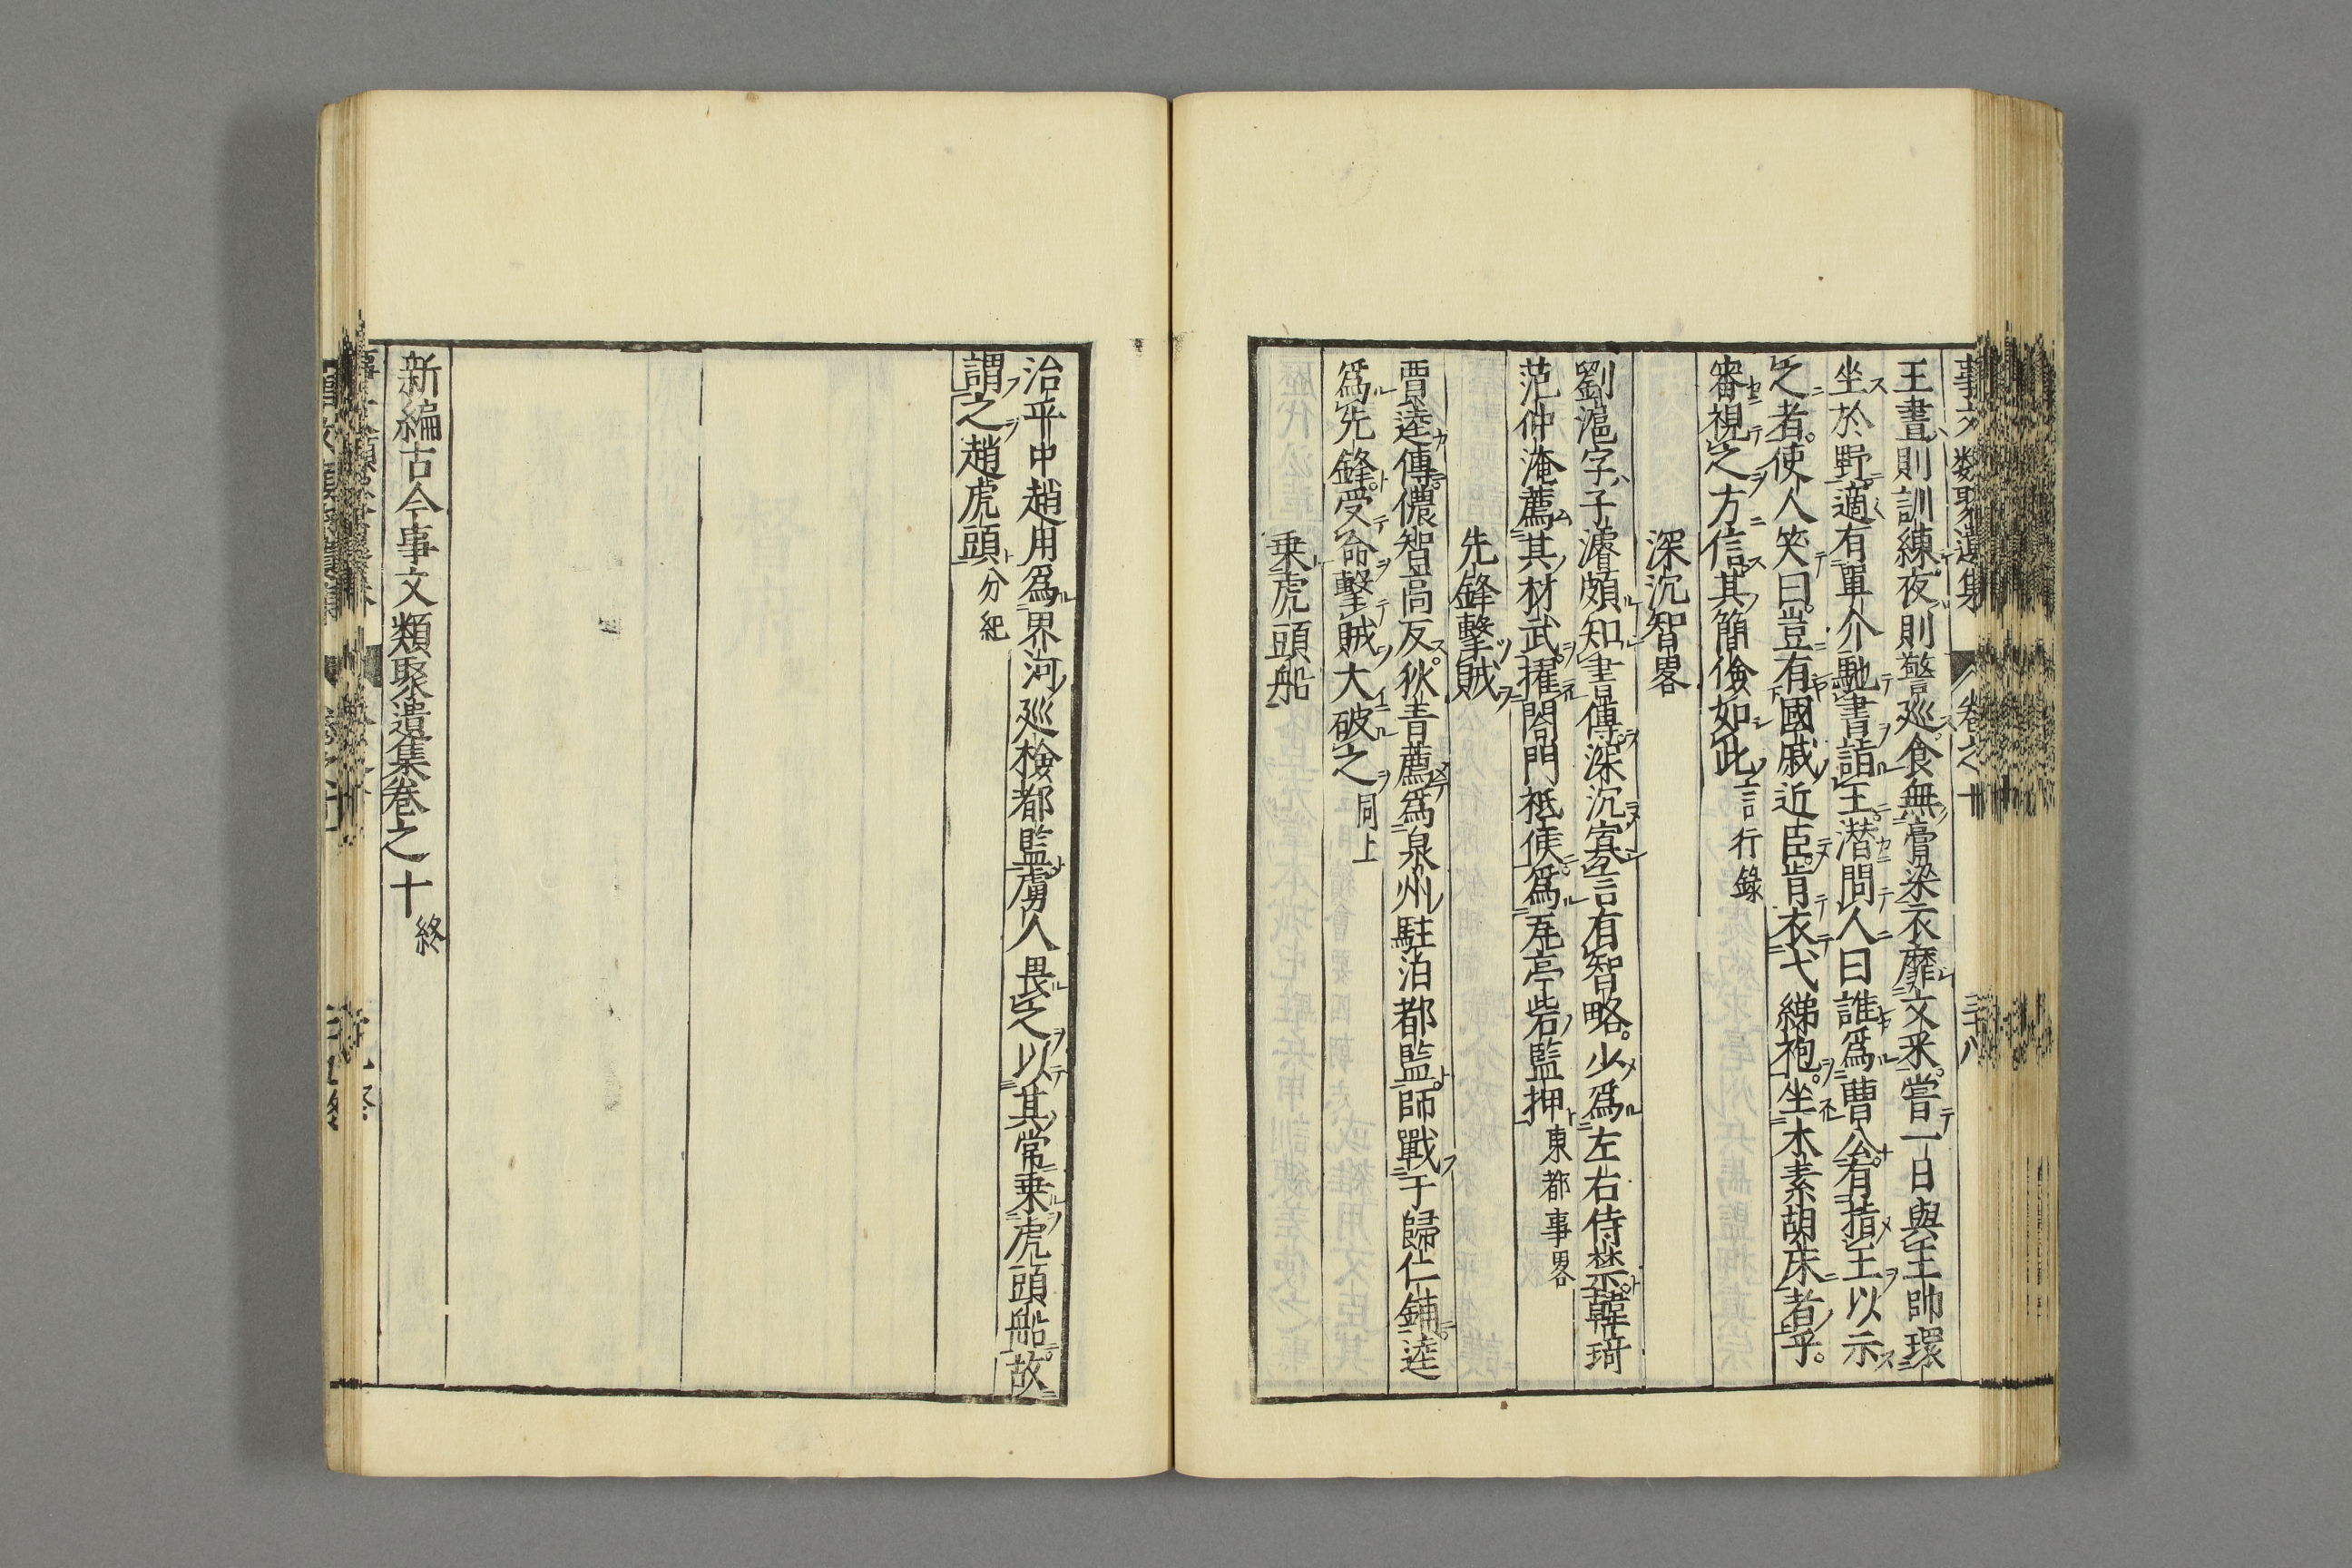 事文類聚遺集 卷之十 三十八
王晝則訓練夜則警廵食無膏粱衣靡文釆嘗一日與王帥環
坐於野適有單介馳書詣王潜問人曰誰爲曹公有指王以示
之者使人笑曰豈有國戚近臣肯衣弋綈袍坐木素胡床者乎
審視之方信其簡儉如此言行錄
深沉智畧
劉滬字子濬頗知書傳深沉寡言有智略少爲左右侍禁韓琦
范仲淹薦其材武擢閤門祗候爲瓦亭砦監押東都事畧
先鋒擊賊
賈逵傳儂智高反狄青薦爲泉州駐泊都監師戰于歸仁鋪逵
爲先鋒受命擊賊大破之同上
乗虎頭船
治平中趙用爲界河廵檢都監虜人畏之以其常乗虎頭船故
謂之趙虎頭分紀
新編古今事文類聚遺集卷之十終